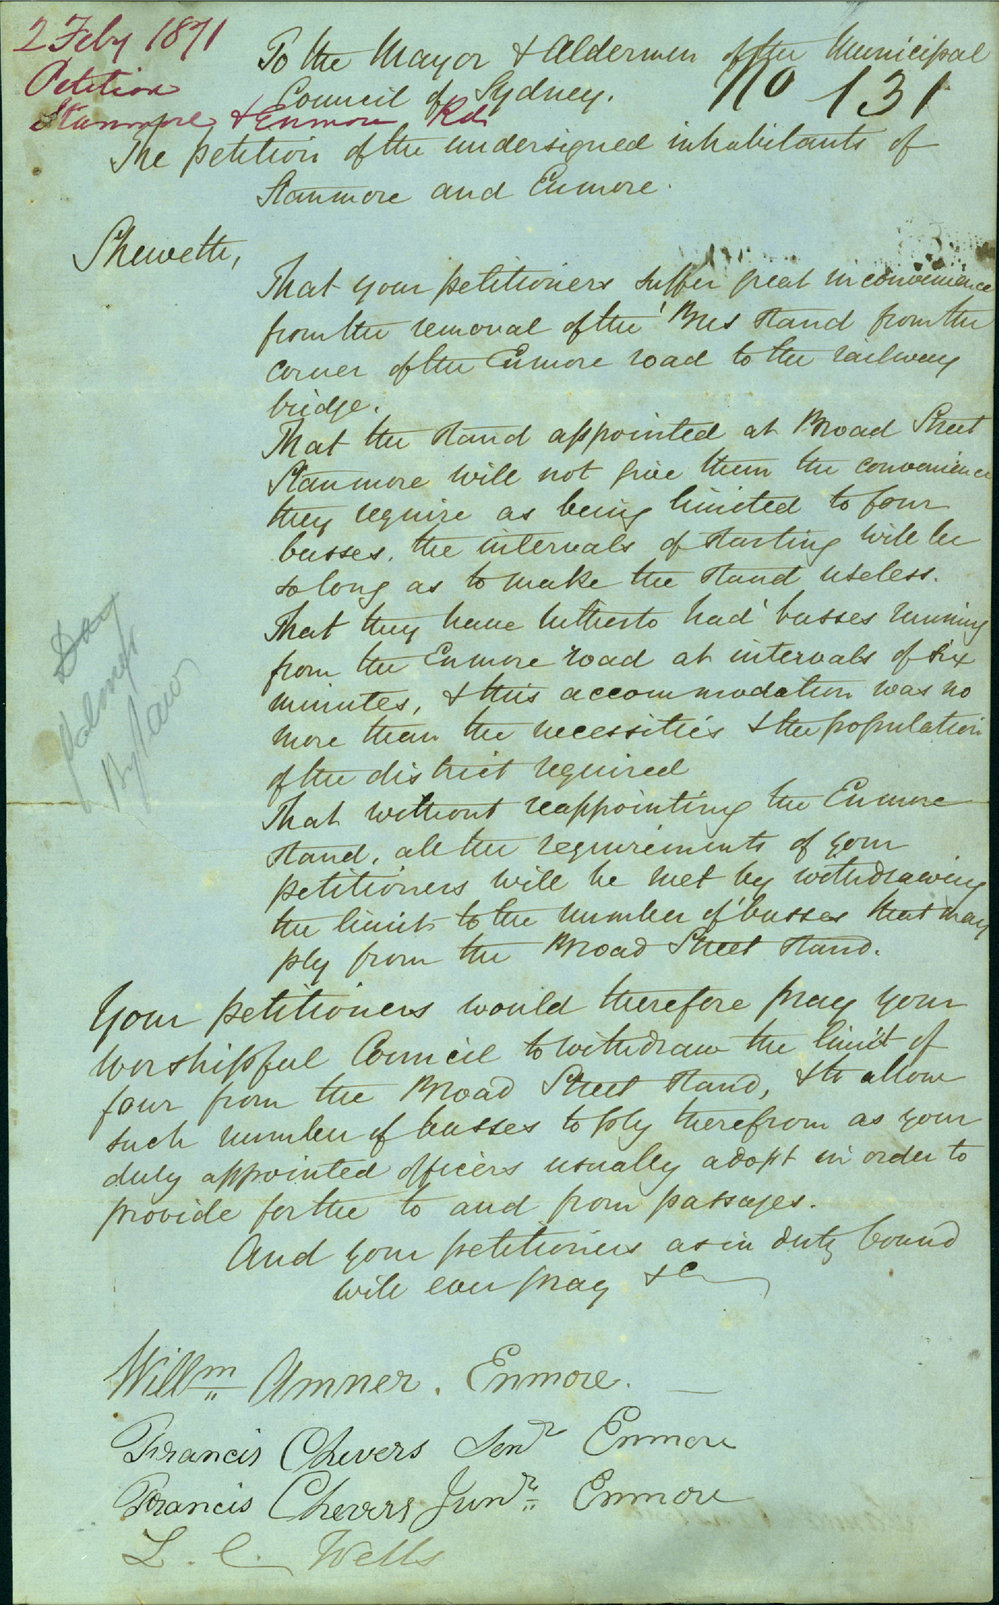 2 Feby 1871
Petition
Stanmore & Enmore Rd
No 131
To the Mayor & Aldermen of the Municipal
Council of Sydney.
The petition of the undersigned inhabitants of
Stanmore and Enmore.
Sheweth,
That your petitioners suffer great inconvenience
from the removal of the 'Bus stand from the
corner of the Enmore road to the railway
bridge.
That the stand appointed at Broad Street
Stanmore will not give them the convenience
they require as being limited to four
busses. the intervals of starting will be
so long as to make the stand useless.
That they have hitherto had 'busses running
from the Enmore road at intervals of six
minutes, & this accommodation was no
more than the necessities & the population
of the district required
That without reappointing the Enmore
stand, all the requirements of your
petitioners will be met by withdrawing
the limit to the number of 'busses that may
ply from the Broad Street stand.
Your petitioners would therefore pray your
worshipful Council to withdraw the limit of
four from the Broad Street stand, & to allow
such number of busses to ply therefrom as your
duly appointed officers usually adopt in order to
provide for the to and from passages.
And your petitioners as in duty bound
will ever pray &c
Willm Amner. Enmore.
Francis Chevers Senr Enmore
Francis Chevers Junr Enmore
L. C. Wells
By law